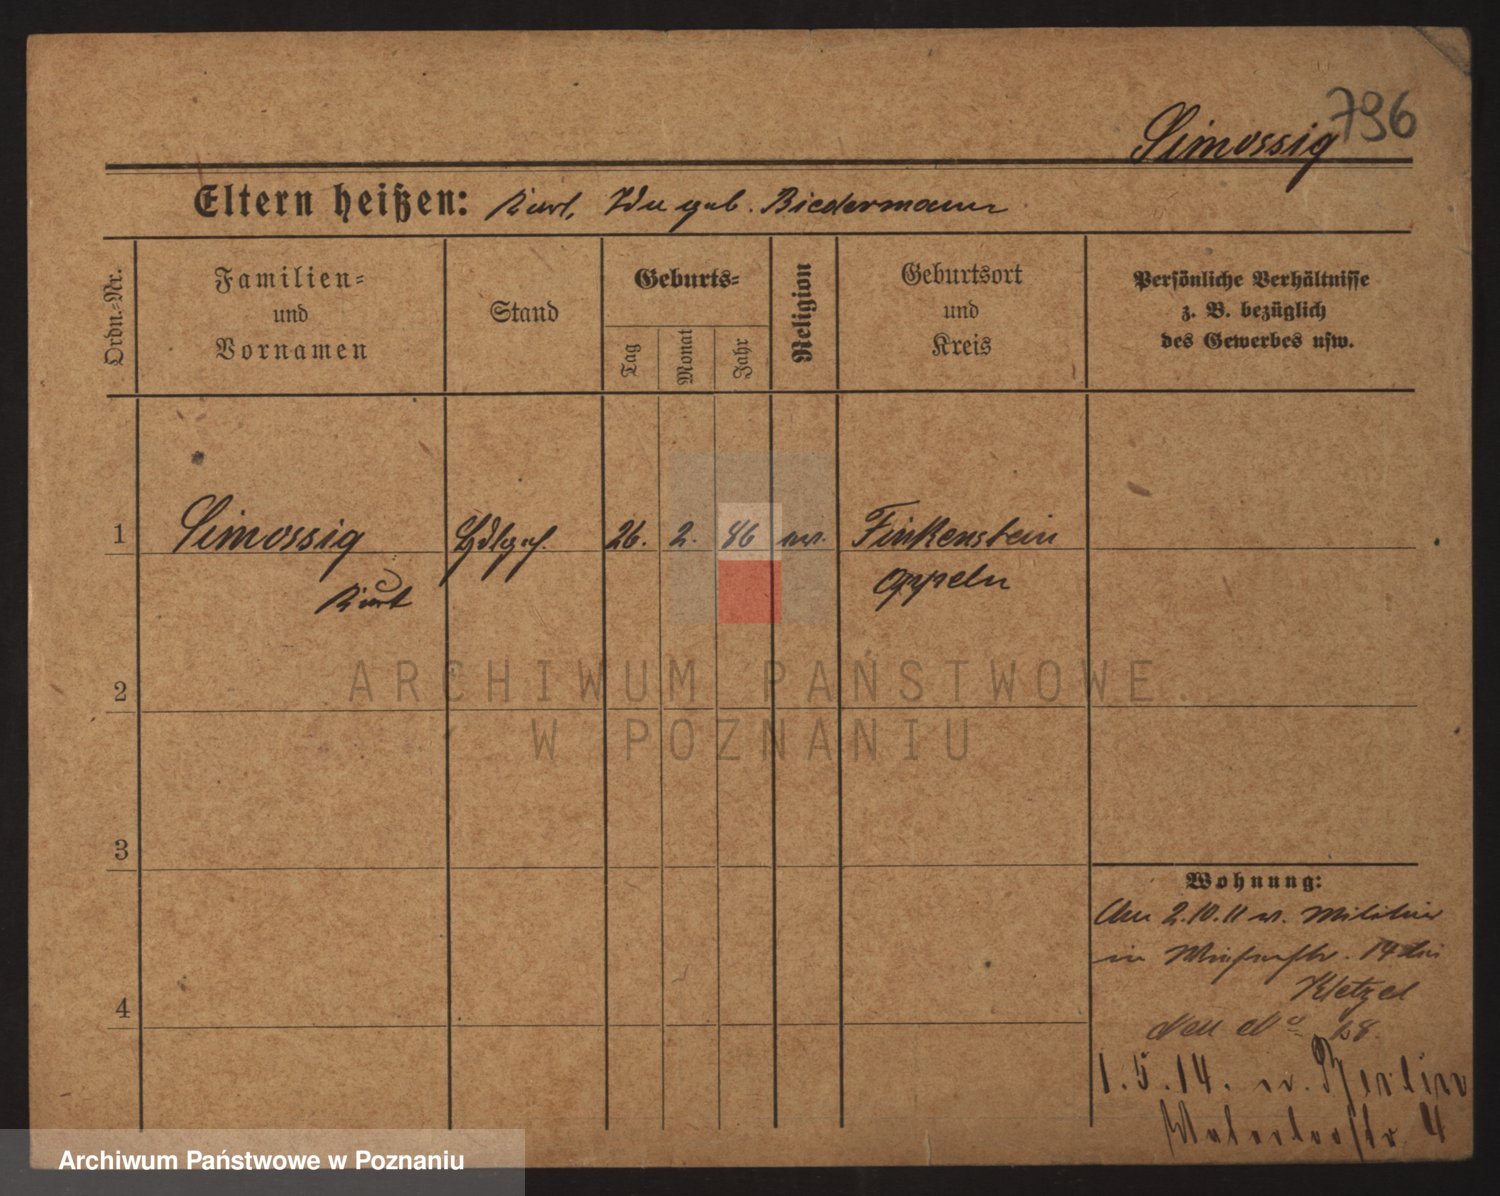 796
Simossig
Eltern heißen: Kurt, Ida geb. Biedermann
Ordn.-Nr.
Familien-
und
Vornamen
Stand
Geburts-
Tag
Monat
Jahr
Religion
Geburtsort
und
Kreis
Persönliche Verhältnisse
z. B. bezüglich
des Gewerbes usw.
1
Simossig
Kurt
Hdlgeh.
26.
2.
86
ev.
Finkenstein
Oppeln
2
3
4
Wohnung:
2.10.11 v. Militär
in 14 bei
Kletzel
1.5.14. n. Berlin
4
ARCHIWUM PAŃSTWOWE
W POZNANIU
Archiwum Państwowe w Poznaniu